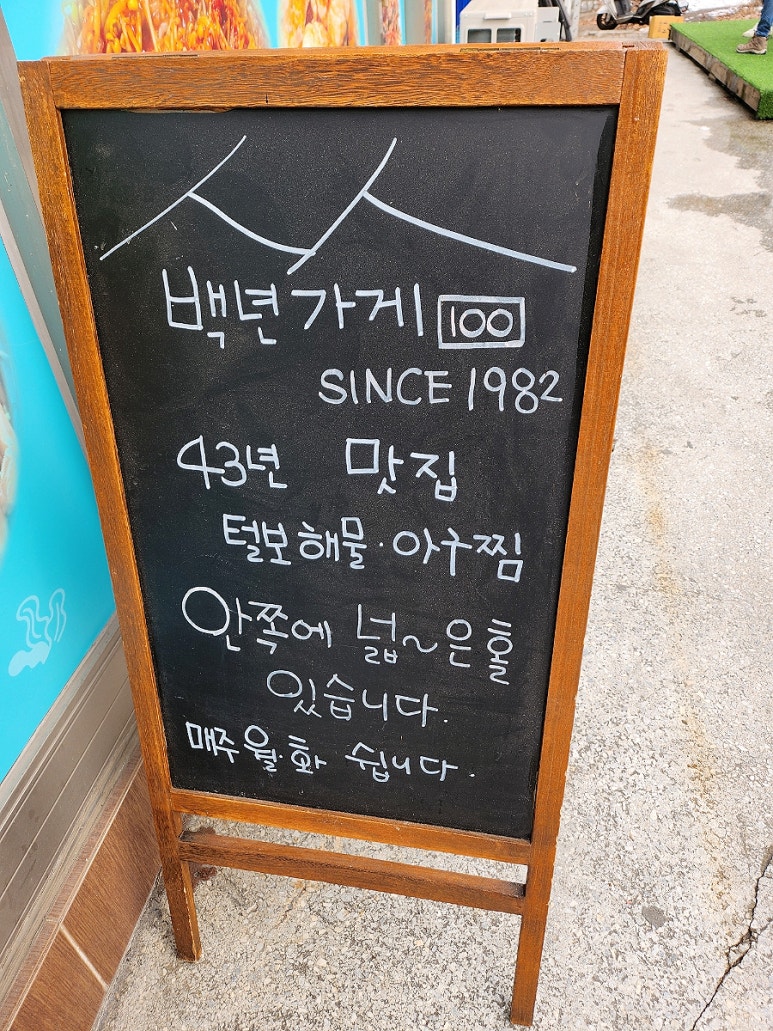 백년가게 100
SINCE 1982
43년 맛집
털보해물·아구찜
안쪽에 넓~은홀
있습니다.
매주 월·화 쉽니다.